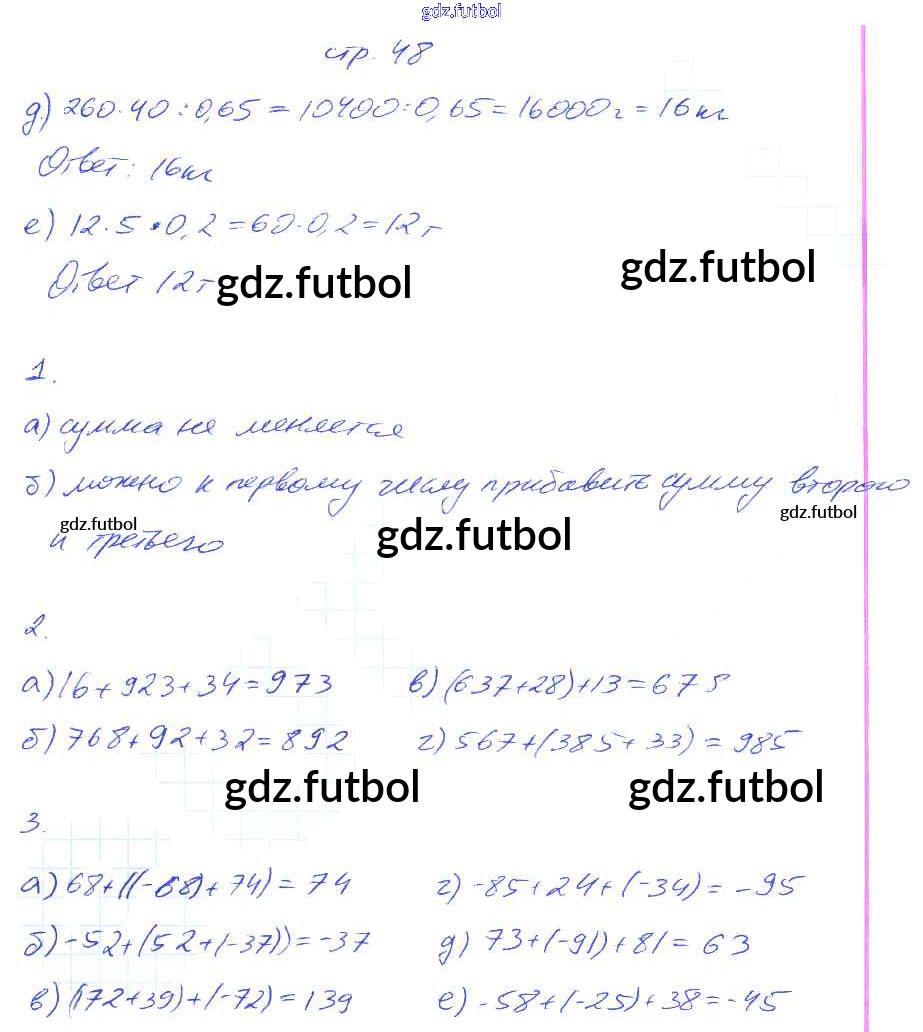 gdz.futbol
стр. 48
д) 260·40:0,65 = 10400:0,65 = 16000 г = 16 кг
Ответ: 16 кг
е) 12·5·0,2 = 60·0,2 = 12 г
Ответ 12 г
gdz.futbol
gdz.futbol
1.
а) сумма не меняется
б) можно к первому числу прибавить сумму второго
и третьего
gdz.futbol
gdz.futbol
gdz.futbol
2.
а) 16+923+34=973
в) (637+28)+13=678
б) 768+92+32=892
г) 567+(385+33)=985
gdz.futbol
gdz.futbol
3.
а) 68+((-68)+74)=74
г) -85+24+(-34)=-95
б) -52+(52+(-37))=-37
д) 73+(-91)+81=63
в) (172+39)+(-72)=139
е) -58+(-25)+38=-45